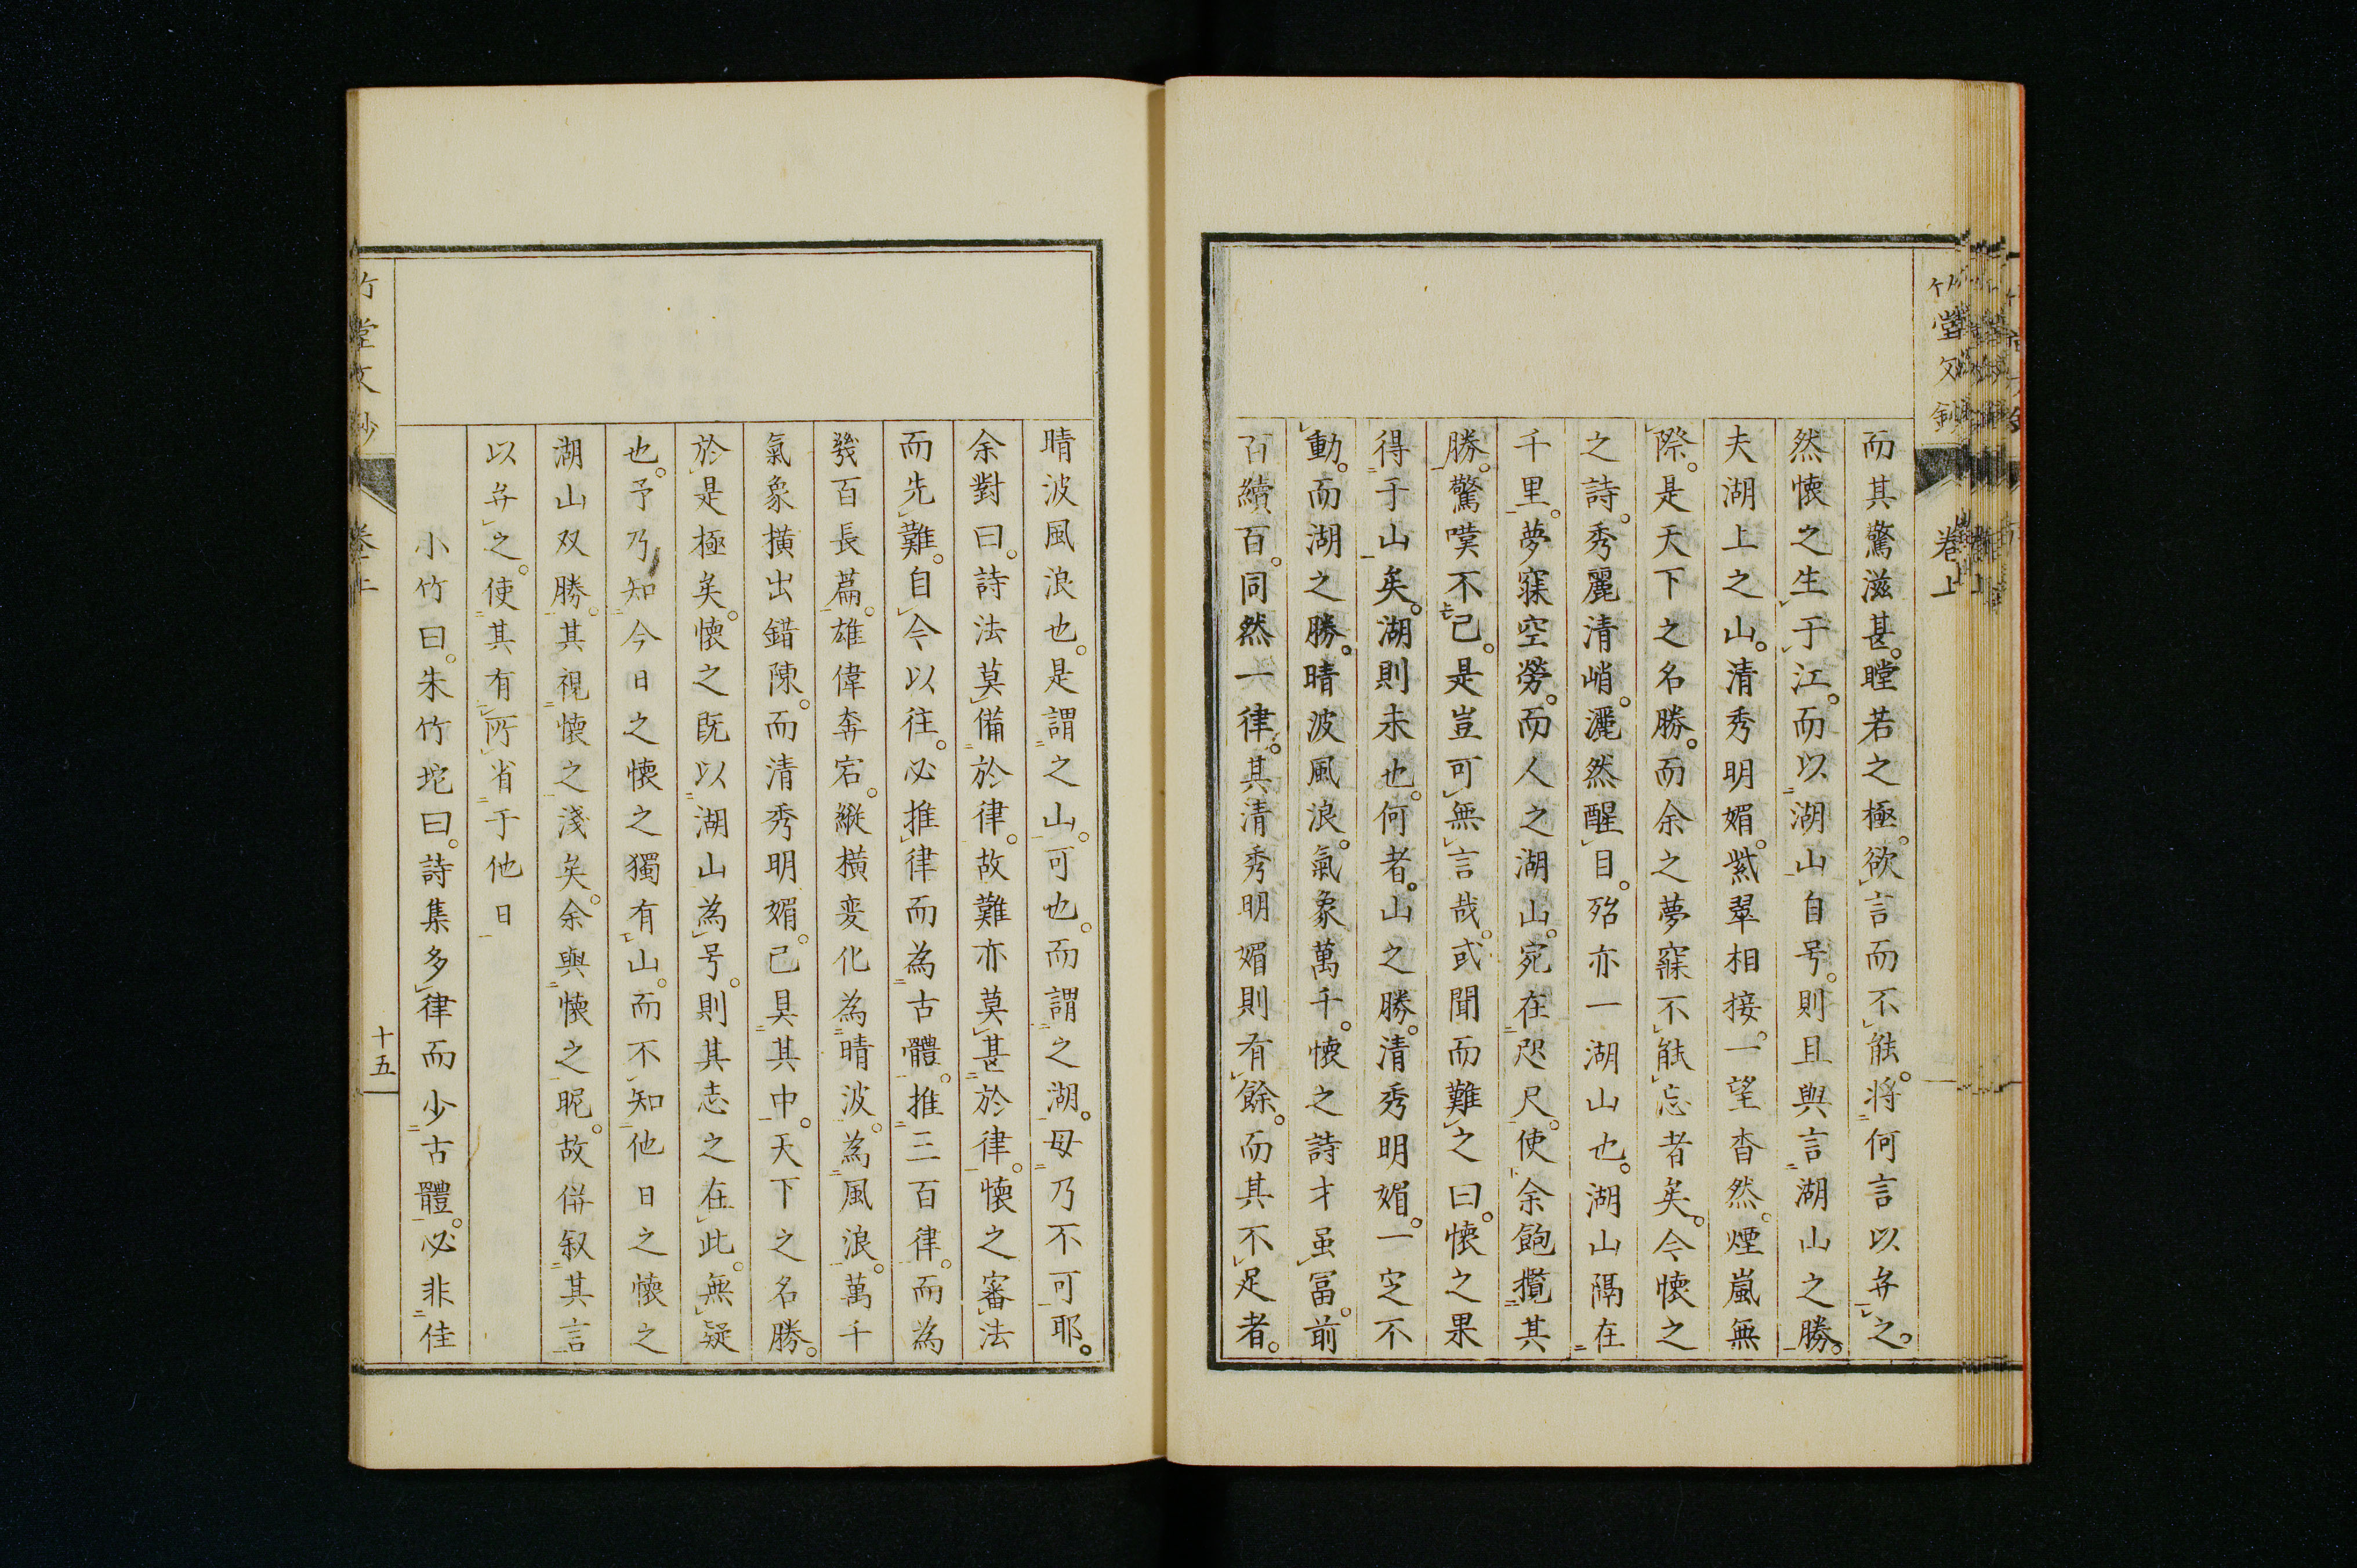 竹堂文鈔
卷上
而其驚滋甚。瞠若之極。欲言而不能。將何言以弁之。
然懷之生于江。而以湖山自号。則且與言湖山之勝。
夫湖上之山。清秀明媚。紫翠相接。一望杳然。煙嵐無
際。是天下之名勝。而余之夢寐不能忘者矣。今懷之
之詩。秀麗清峭。灑然醒目。殆亦一湖山也。湖山隔在
千里。夢寐空勞。而人之湖山。宛在咫尺。使余飽攬其
勝。驚嘆不已。是豈可無言哉。或聞而難之曰。懷之果
得于山矣。湖則未也。何者。山之勝。清秀明媚。一定不
動。而湖之勝。晴波風浪。氣象萬千。懷之詩才虽冨。前
百續百。同然一律。其清秀明媚則有餘。而其不足者。
晴波風浪也。是謂之山。可也。而謂之湖。毋乃不可耶。
余對曰。詩法莫備於律。故難亦莫甚於律。懷之審法
而先難。自今以往。必推律而為古體。推三百律。而為
幾百長篇。雄偉奔宕。縱橫変化為晴波。為風浪。萬千
氣象橫出錯陳。而清秀明媚。已具其中。天下之名勝。
於是極矣。懷之既以湖山為号。則其志之在此。無疑
也。予乃知今日之懷之獨有山。而不知他日之懷之
湖山双勝。其視懷之淺矣。余與懷之昵。故併叙其言
以弁之。使其有所省于他日
小竹曰。朱竹垞曰。詩集多律而少古體。必非佳
竹堂文鈔
卷上
十五